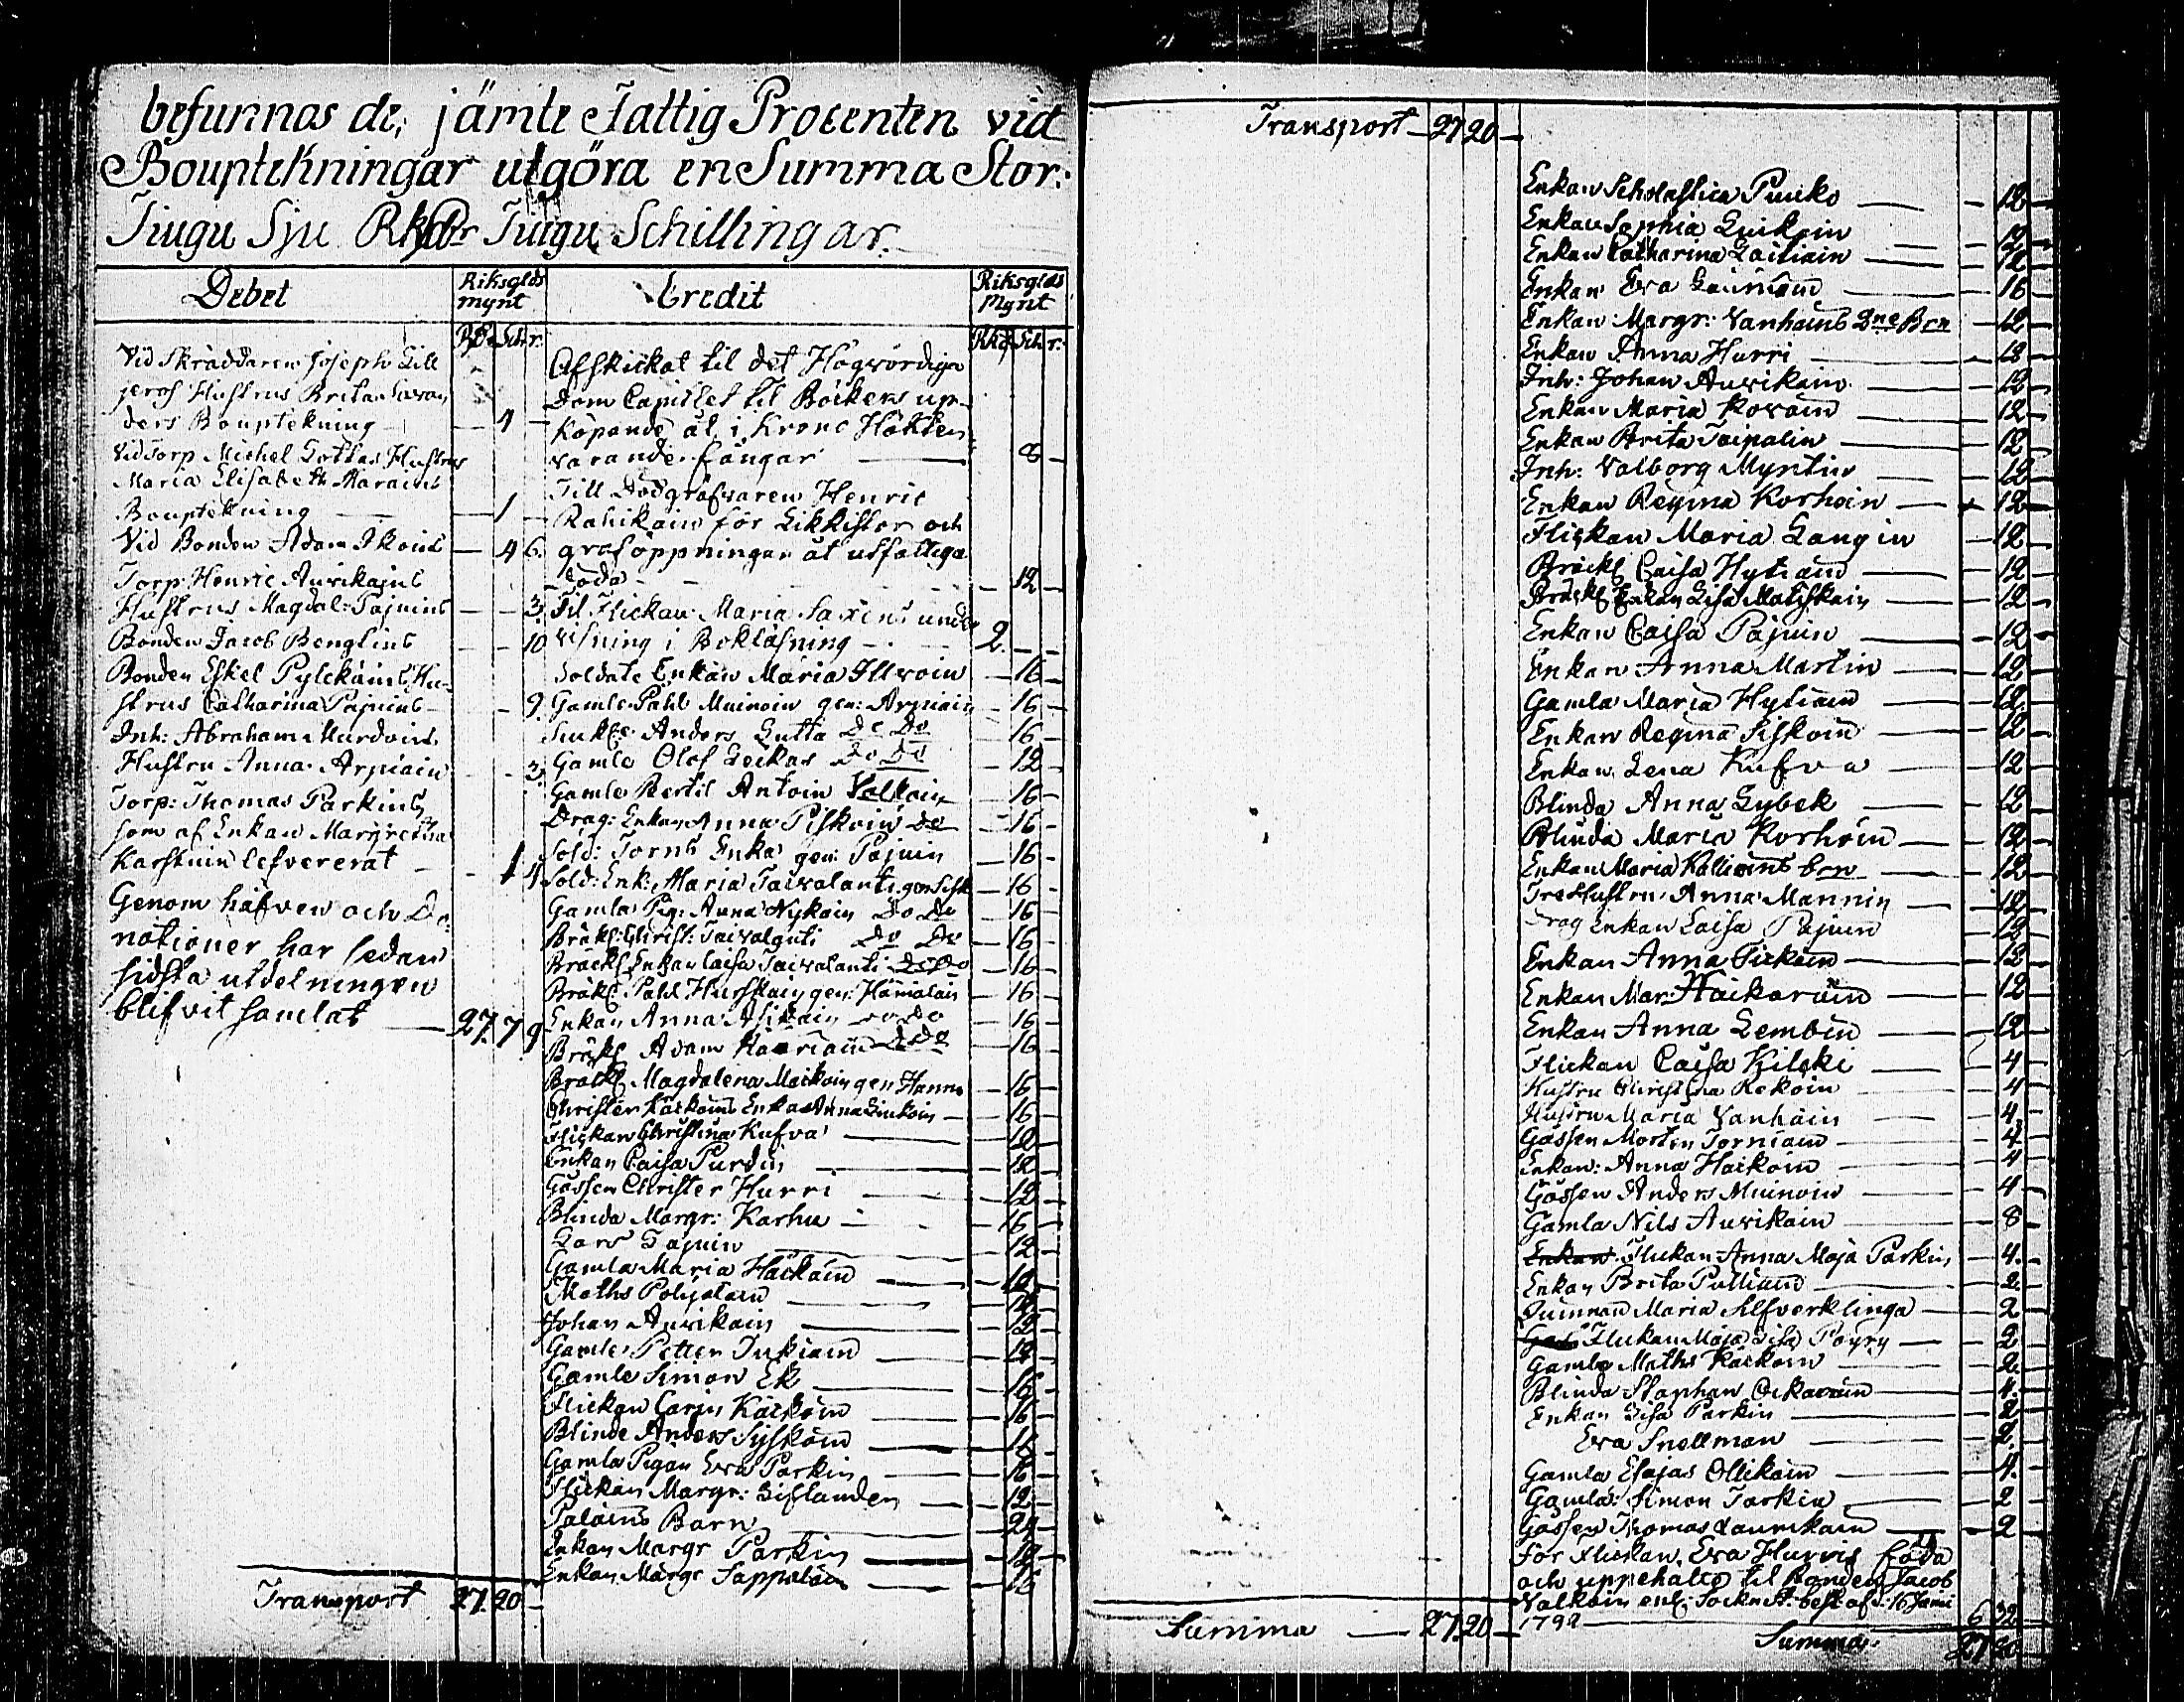 befunnas de, jämte Fattig Procenten vid
Bouptekningar utgöra en Summa Stor:
Tiugu Sju RKsdr Tiugu Schillingar.
Debet
Riksglds
mynt
Rd. Sch. r.
Vid Skräddaren Joseph Lill
jerofs Hustrus Brita Savan
ders Bouptekning 4
Vid Torp Michel Gottas Hustrus
Maria Elisabeth
Bouptekning 1
Vid Bonden Adam Ikoins 4 6.
Torp: Henric Auvikains
Hustrus Magdal: Pajuins 3.
Bonden Jacob Benglins 10
Bonden Eskel Pylckäins Hu-
strus Catharina Pajuins 9.
Inh: Abraham Murdoins
Hustru Anna Arpiain 3.
Torp: Thomas Parkins
som af Enkan Margretha
Karstuin lefvererat 1 4
Genom håfven och Do-
nationer har sedan
sidsta utdelningen
blifvit samlat 27. 7 9
Transport 27. 20
Credit
Riksglds
Mynt
Rkd Sch r.
Afskickat til det Högvördiga
Dom Capitlet til Böckers up-
köpande åt i Krono Häkten
varande fångar 8
Till Dödgräfvaren Henric
Rahikain för Likkistor och
graföppningar åt utfattiga
döda 12
Til Flickan Maria Saxens unde
visning i Bokläsning 2.
Soldate Enkan Maria Illvoin 16
Gamle Påhl Muinoin gen: Arpiain 16
Siukl: Anders Gutta Do Do 16
Gamle Olof Leckas Do Do 12
Gamle Bertil Antoin Valkoin 16
Drag: Enkan Anna Piskoin Do 16
Sold: Torns Enka gen: Pajuin 16
Sold: Enk: Maria Taivalanti gen Sisk 16
Gamla Pig: Anna Nykäin Do Do 16
Bräkl: Christ: Taivalanti Do Do 16
Bräckl Enkan Caisa Taivalanti Do Do 16
Bräkl Påhl Hurskain gen: Hämäläin 16
Enkan Anna Asikain Do Do 16
Bräkl Adam Kauriain Do Do 16
Bräckl Magdalena Maikoin gen Hanno 16
Christer Käckoins Enka Anna Linkoin 16
Flickan Christina Kufva 12
Enkan Caisa Purdin 12
Gossen Christer Hurri 12
Blinda Margr: Karhu 16
Lars Pajuin 12
Gamla Maria Häckäin 12
Maths Pohjalain 12
Johan Auvikain 12
Gamle Petter Inkiäin 12
Gamle Simon Ek 16
Flickan Carin Käckoin 16
Blinde Anders Syskoin 16
Gamla Pigan Eva Parkin 16
Flickan Margr: Sislanden 12
Paläins Barn 24
Enkan Margr Parkin 12
Enkan Margr Sappoläin 16
Transport 27 20
Enkan Scholastica Puuko 12
Enkan Sophia Linkoin 12
Enkan Catharina Laitiain 12
Enkan Eva Läimäin 16
Enkan: Margr: Vanhains 2ne Brn 12
Enkan Anna Hurri 18
Inh: Johan Auvikain 12
Enkan Maria Rovain 12
Enkan Brita Taipalin 12
Inh: Valborg Myntin 12
Enkan Regina Korhoin 12
Flickan Maria Langin 12
Bräckl Caisa Hytiäin 12
Bräckl Enkan Lisa Matiskain 12
Enkan Caisa Pajuin 12
Enkan Anna Martin 12
Gamla Maria Hytiäin 12
Enkan Regina Siskoin 12
Enkan Lena Kufva 12
Blinda Anna Lybek 12
Blinda Maria Korhoin 12
Enkan Maria Kallioins brn 12
Hustru Anna Mannin 12
Drag Enkan Caisa Pajuin 12
Enkan Anna Tickäin 12
Enkan Mar: Häickäräin 12
Enkan Anna Lembin 12
Flickan Caisa Kilski 4
Hustru Christina Rekoin 4
Hustru Maria Vanhain 4
Gossen Morten Torniain 4
Enkan: Anna Haikoin 4
Gossen Anders Muinoin 4
Gamla Nils Auvikain 8
Enkan Flickan Anna Maja Parkin 4
Enkan Brita Pulliain 2
Quinnan Maria Elfverklinga 2
Flickan Maja Lisa Poyry 2
Gamle Maths Käckoin 2
Blinda Staphan Ockaräin 4
Enkan Lisa Parkin 2
Eva Snellman 2
Gamla Esajas Ollikain 4
Gamla: Simon Tarkin 2
Gossen Thomas Laurikain 2
För Flickan Eva Hurris föda
och uppehälle til Bonden Jacob
Valkoin enl: Sockn St. besl: af d: 16 Junii
1792 6 32
Summa 27 20
Summa 27 20